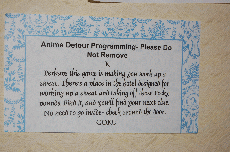 Anime Detour Programming- Please Do
Not Remove
Perhaps this game is making you work up a
sweat. There's a place in the hotel designed for
working up a sweat and taking off those tacky
pounds. Find it, and you'll find your next clue.
No need to go inside- check around the door.